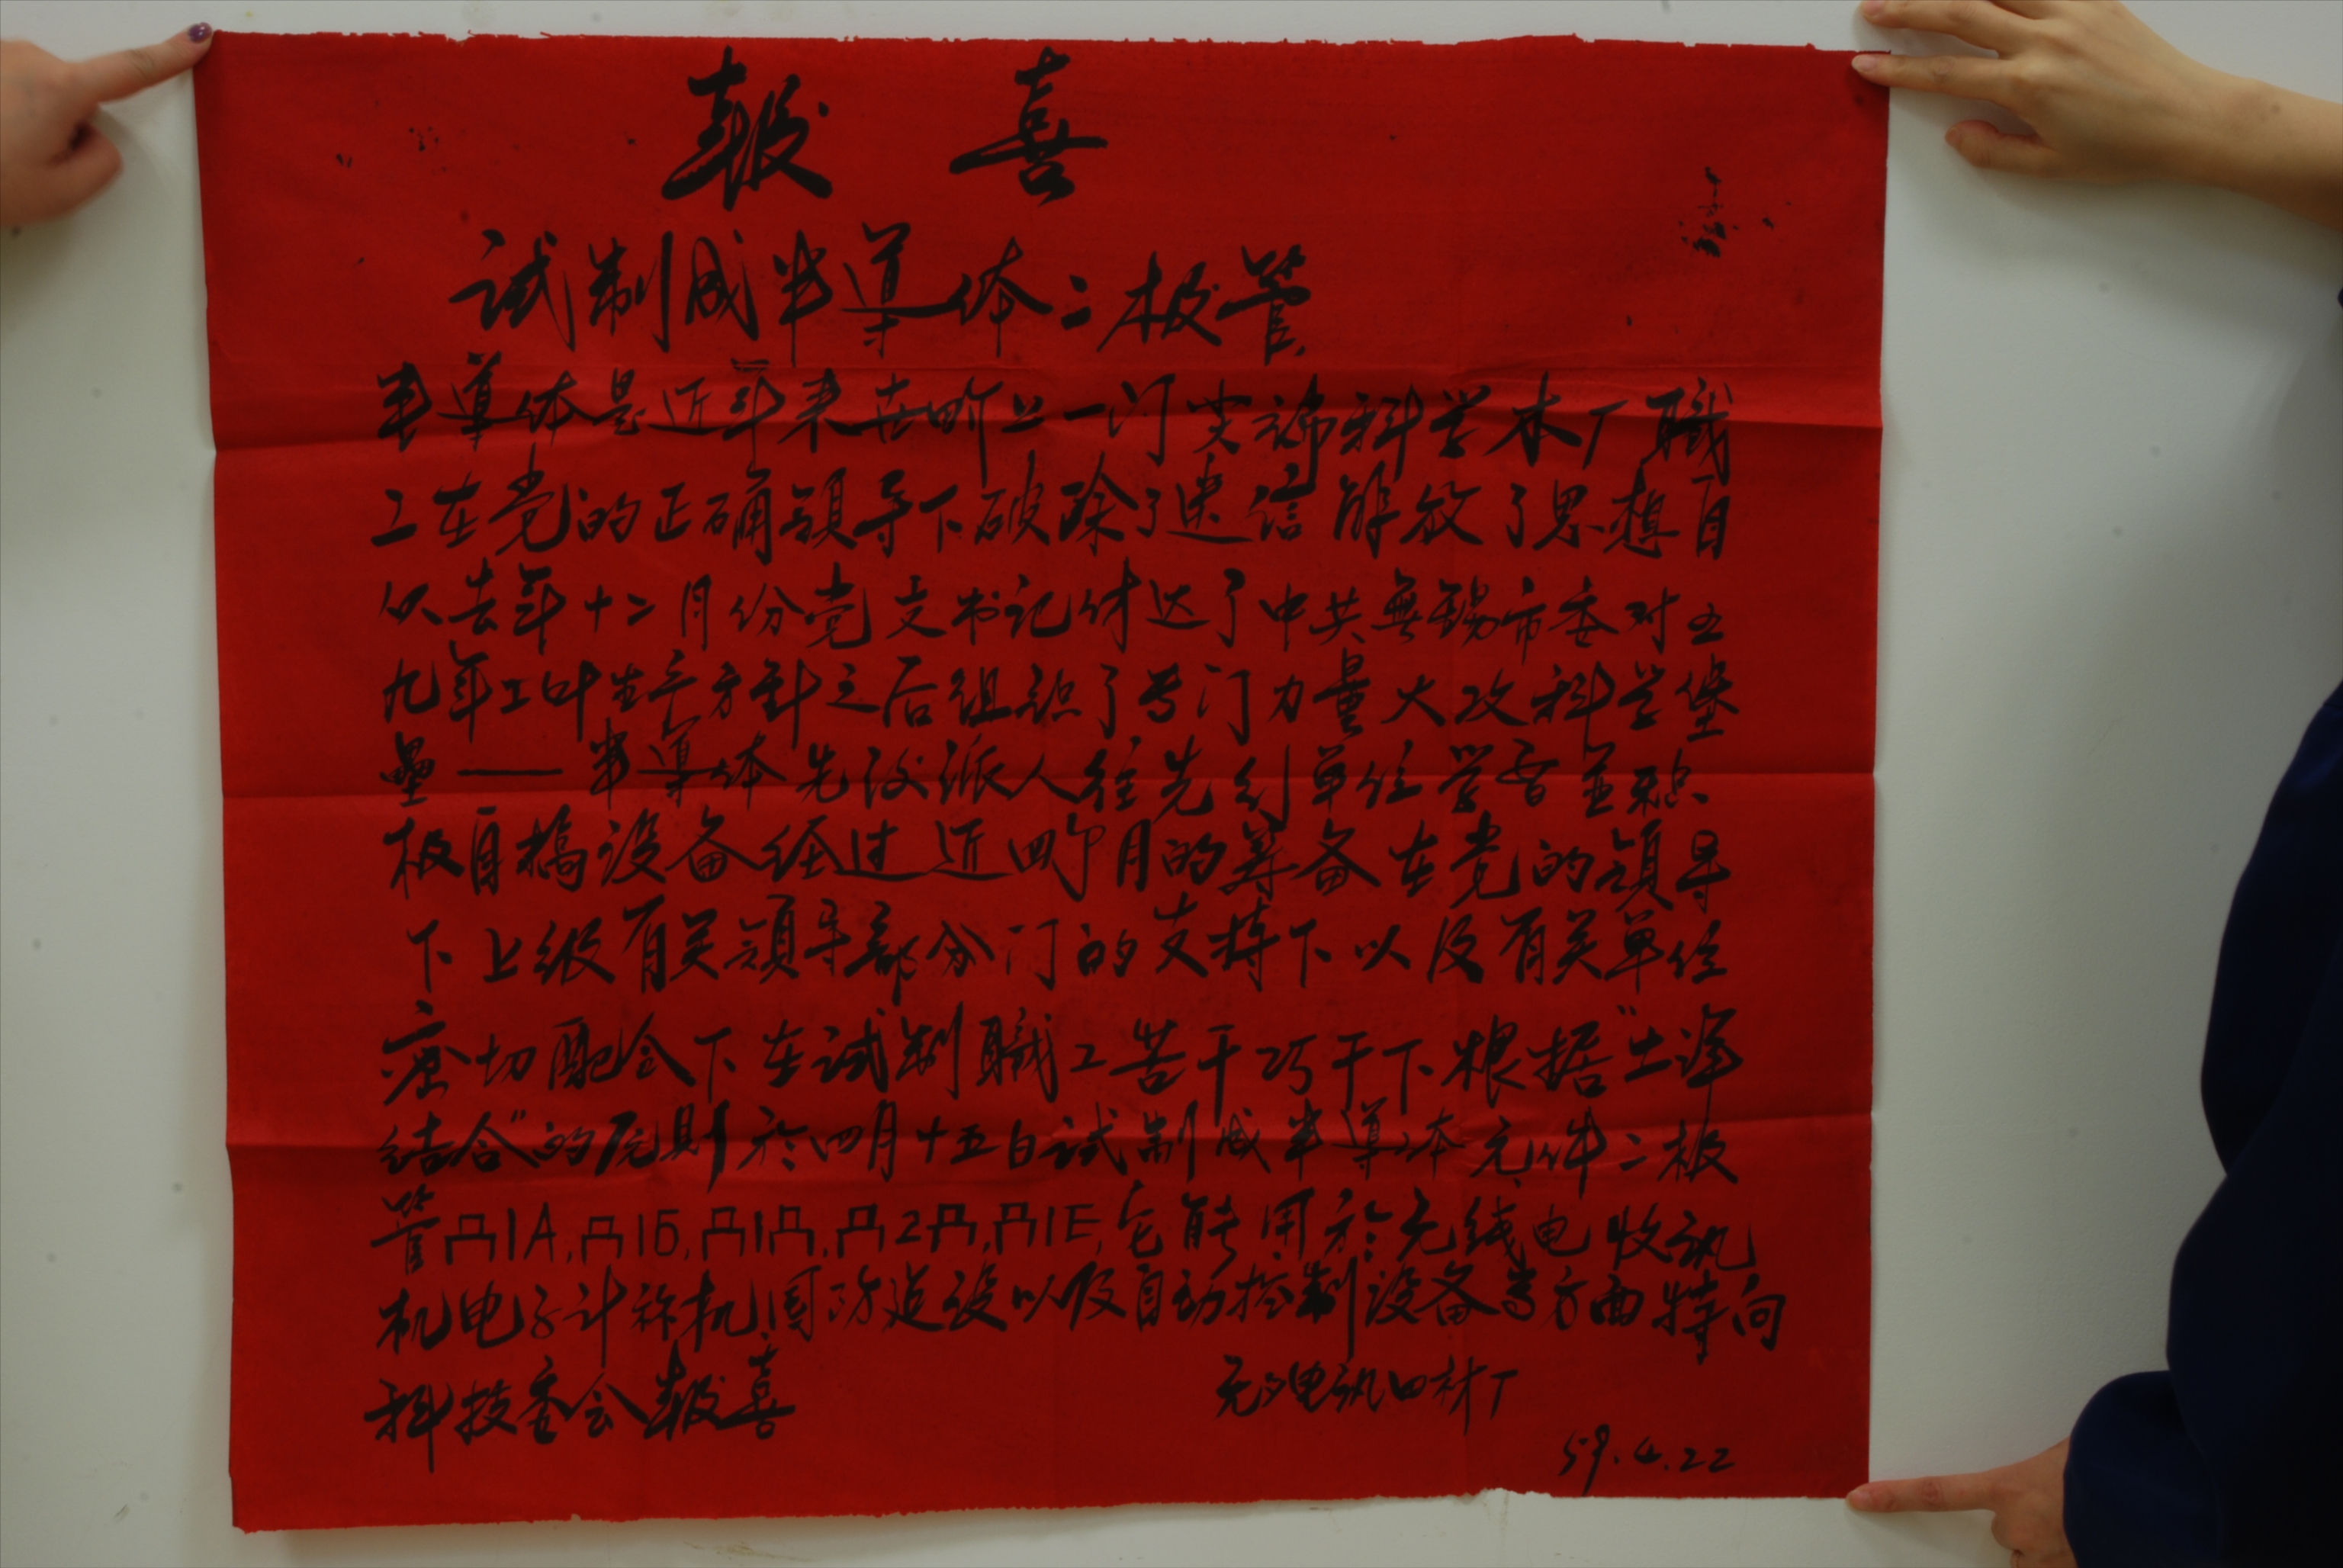 報 喜
试制成半導体二极管
半導体是近年来世界上一门尖端科学本厂職
工在党的正确領导下破除了迷信解放了思想自
从去年十二月份党支书记传达了中共無錫市委对五
九年工叶生产方針之后组织了专门力量大攻科学堡
壘——半導体先后派人往先进单位学習並积
极自搞设备经过近四个月的筹备在党的領导
下上级有关領导部分门的支持下以及有关单位
密切配合下在试制職工苦干巧干下根据“土洋
结合”的原則於四月十五日试制成半導体元件二极
管Д1А,Д1Б,Д1Д,Д2Д,Д1Е,它能用於无线电收讯
机电子计称机国防建设以及自动控制设备等方面特向
科技委会報喜
无线电讯器材厂
59.4.22